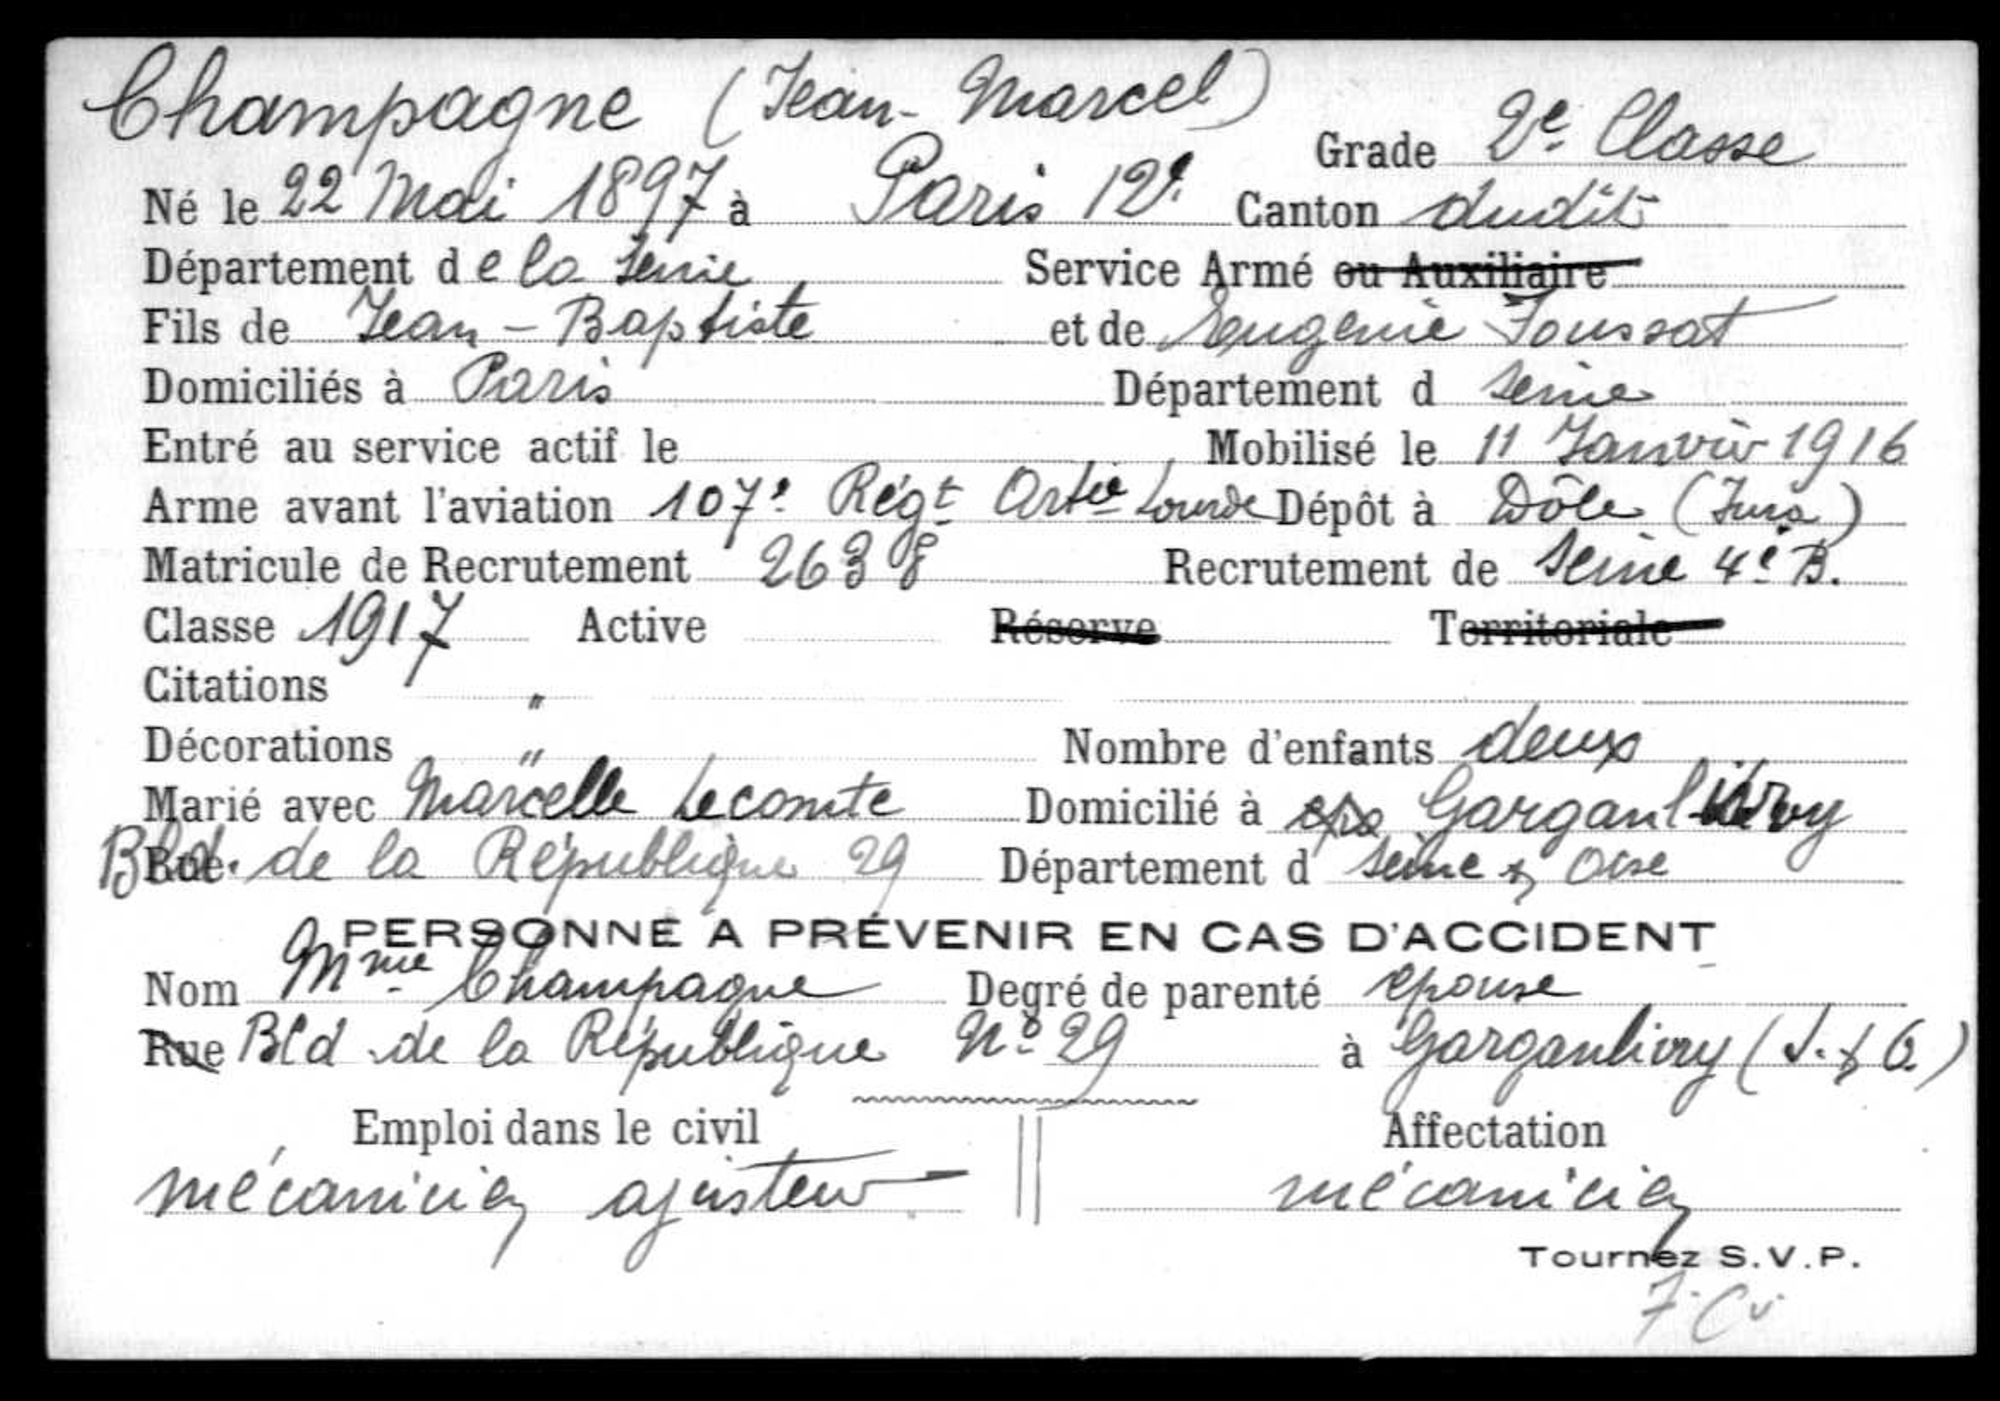 Champagne (Jean-Marcel)
Grade 2e Classe
Né le 22 Mai 1897 à Paris 12e Canton dudit
Département de la Seine Service Armé ou Auxiliaire
Fils de Jean-Baptiste et de Eugénie Toussat
Domiciliés à Paris Département d Seine
Entré au service actif le Mobilisé le 11 Janvier 1916
Arme avant l'aviation 107e Régt Artie Lourde Dépôt à Dôle (Jura)
Matricule de Recrutement 2638 Recrutement de Seine 4e B.
Classe 1917 Active Réserve Territoriale
Citations "
Décorations " Nombre d'enfants deux
Marié avec Marcelle Lecomte Domicilié à Garganlivry
Rue Bld. de la République 29 Département d Seine & Oise
PERSONNE A PRÉVENIR EN CAS D'ACCIDENT
Nom Mme Champagne Degré de parenté épouse
Rue Bld de la République No 29 à Garganlivry (S. & O.)
Emploi dans le civil Affectation
mécanicien ajusteur mécanicien
Tournez S.V.P.